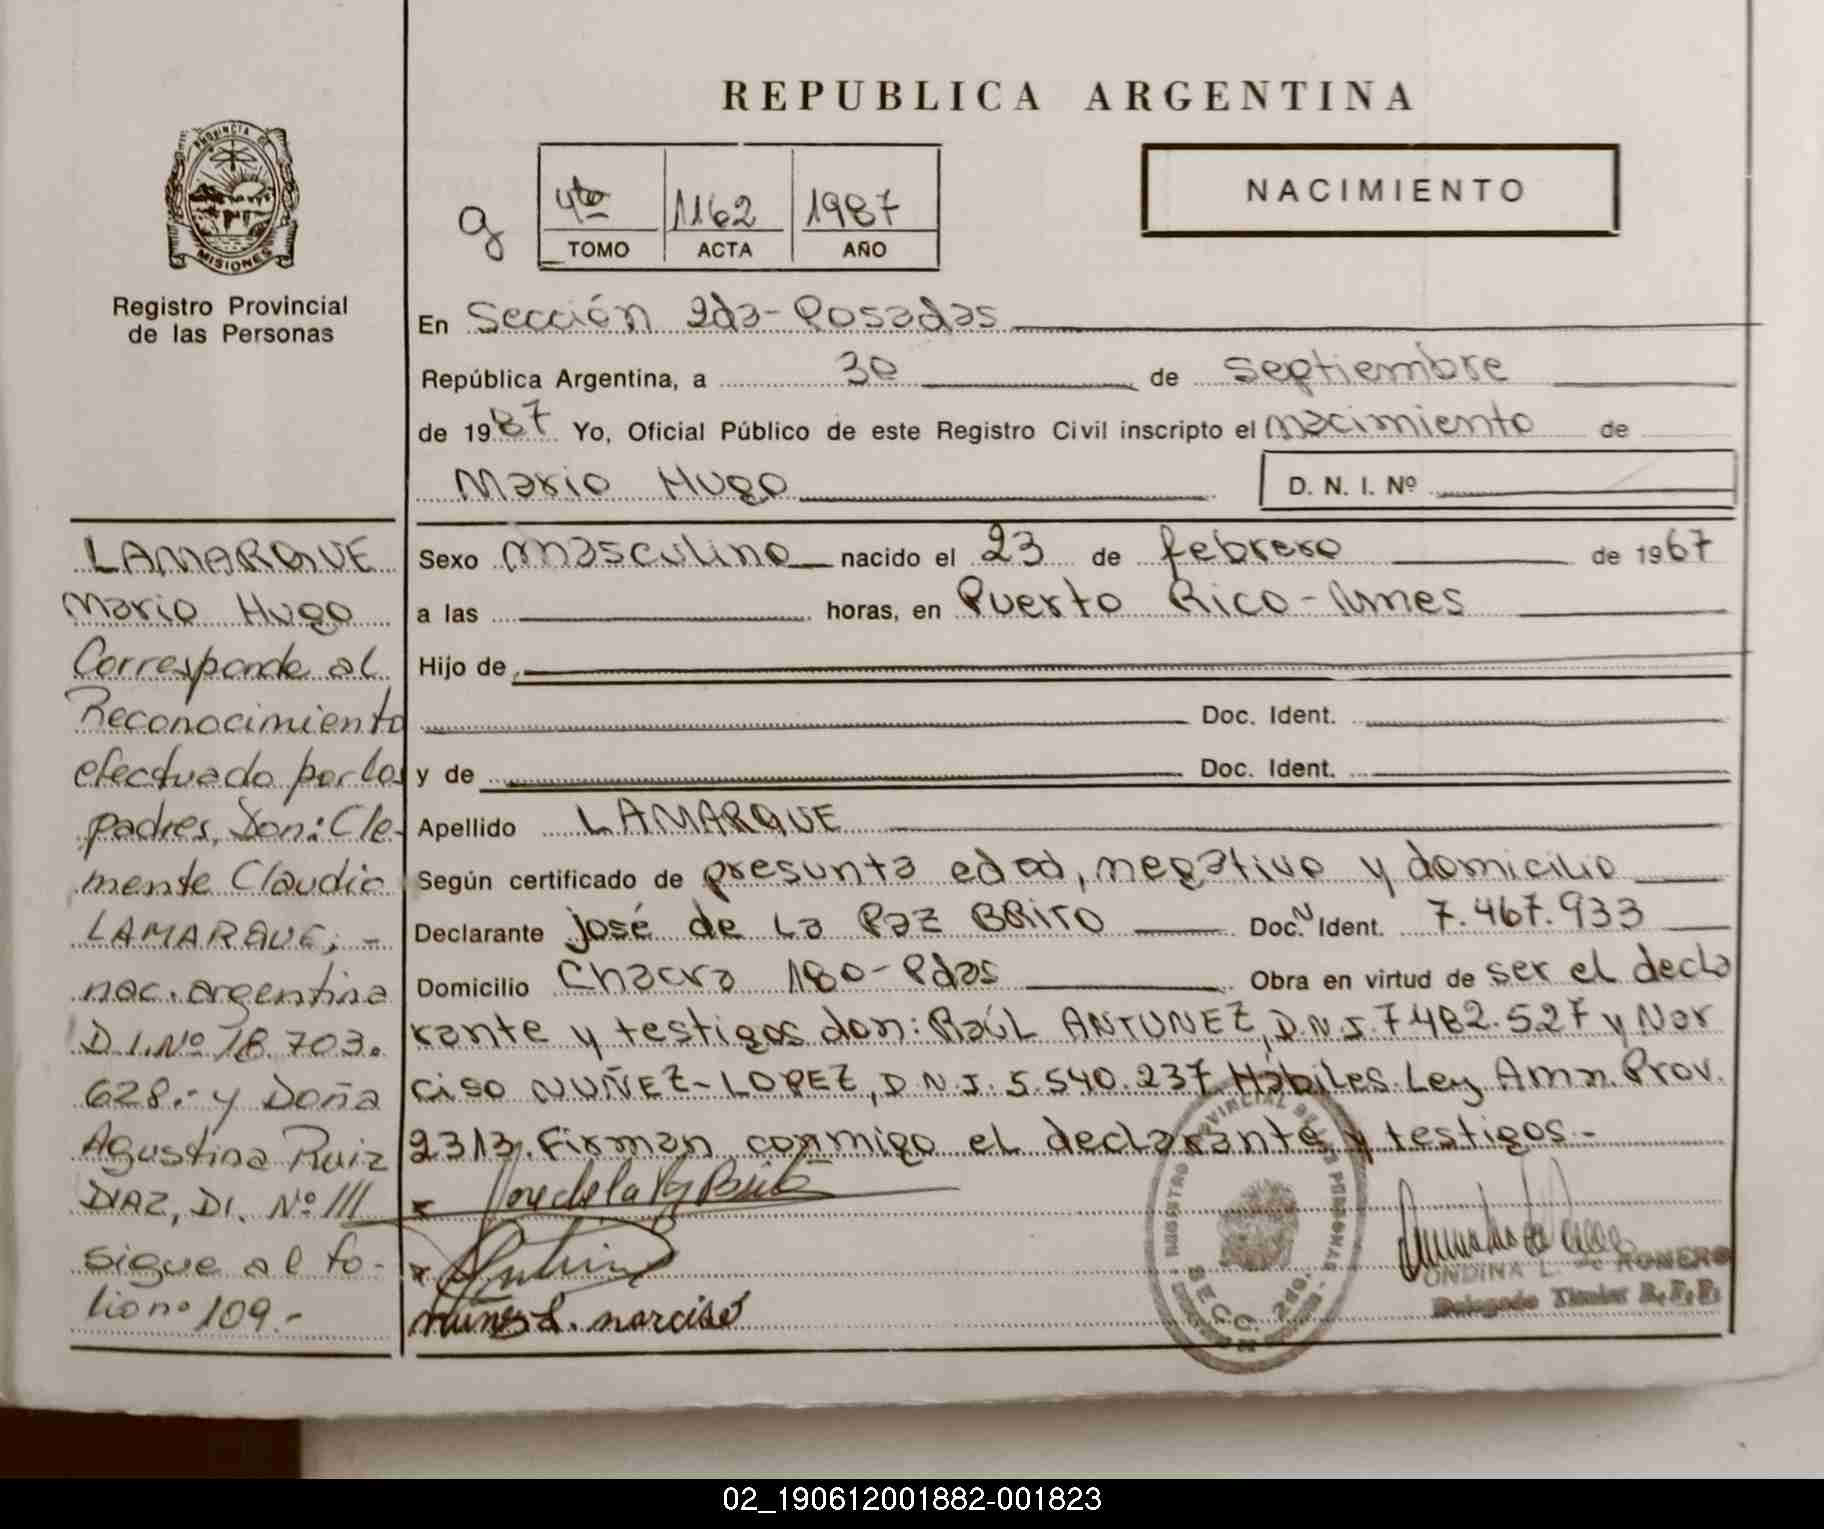 REPUBLICA ARGENTINA
PROVINCIA DE
MISIONES
Registro Provincial
de las Personas
g
4to 1162 1987
TOMO ACTA AÑO
NACIMIENTO
En Sección 2da-Posadas
República Argentina, a 30 de septiembre
de 1987 Yo, Oficial Público de este Registro Civil inscripto el nacimiento de
Mario Hugo D. N. I. Nº
LAMARQUE
Mario Hugo
Corresponde al
Reconocimiento
efectuado por los
padres, Don: Cle-
mente Claudio
LAMARQUE; -
nac. argentina
D.I. Nº 18.703.
628.- y Doña
Agustina Ruiz
DIAZ, DI. Nº 111
sigue al fo-
lio nº 109.-
Sexo masculino nacido el 23 de febrero de 1967
a las horas, en Puerto Rico-
Hijo de
Doc. Ident.
y de Doc. Ident.
Apellido LAMARQUE
Según certificado de presunta edad, negativo y domicilio
Declarante josé de La Paz BRITO Doc. Ident. 7.467.933
Domicilio Chacra 180-Pdas Obra en virtud de ser el decla
rante y testigos don: Raúl ANTUNEZ, D.N.I. 7.482.527 y Nar
ciso NUÑEZ-LOPEZ, D.N.I. 5.540.237 Hábiles. Ley Amn. Prov.
2313. Firman conmigo el declarante y testigos.-
Jose de la Paz Brito
nuñez L. narciso
SECC. 2da.
ONDINA L. de RONERO
Delegado Titular R.P.P.
02_190612001882-001823